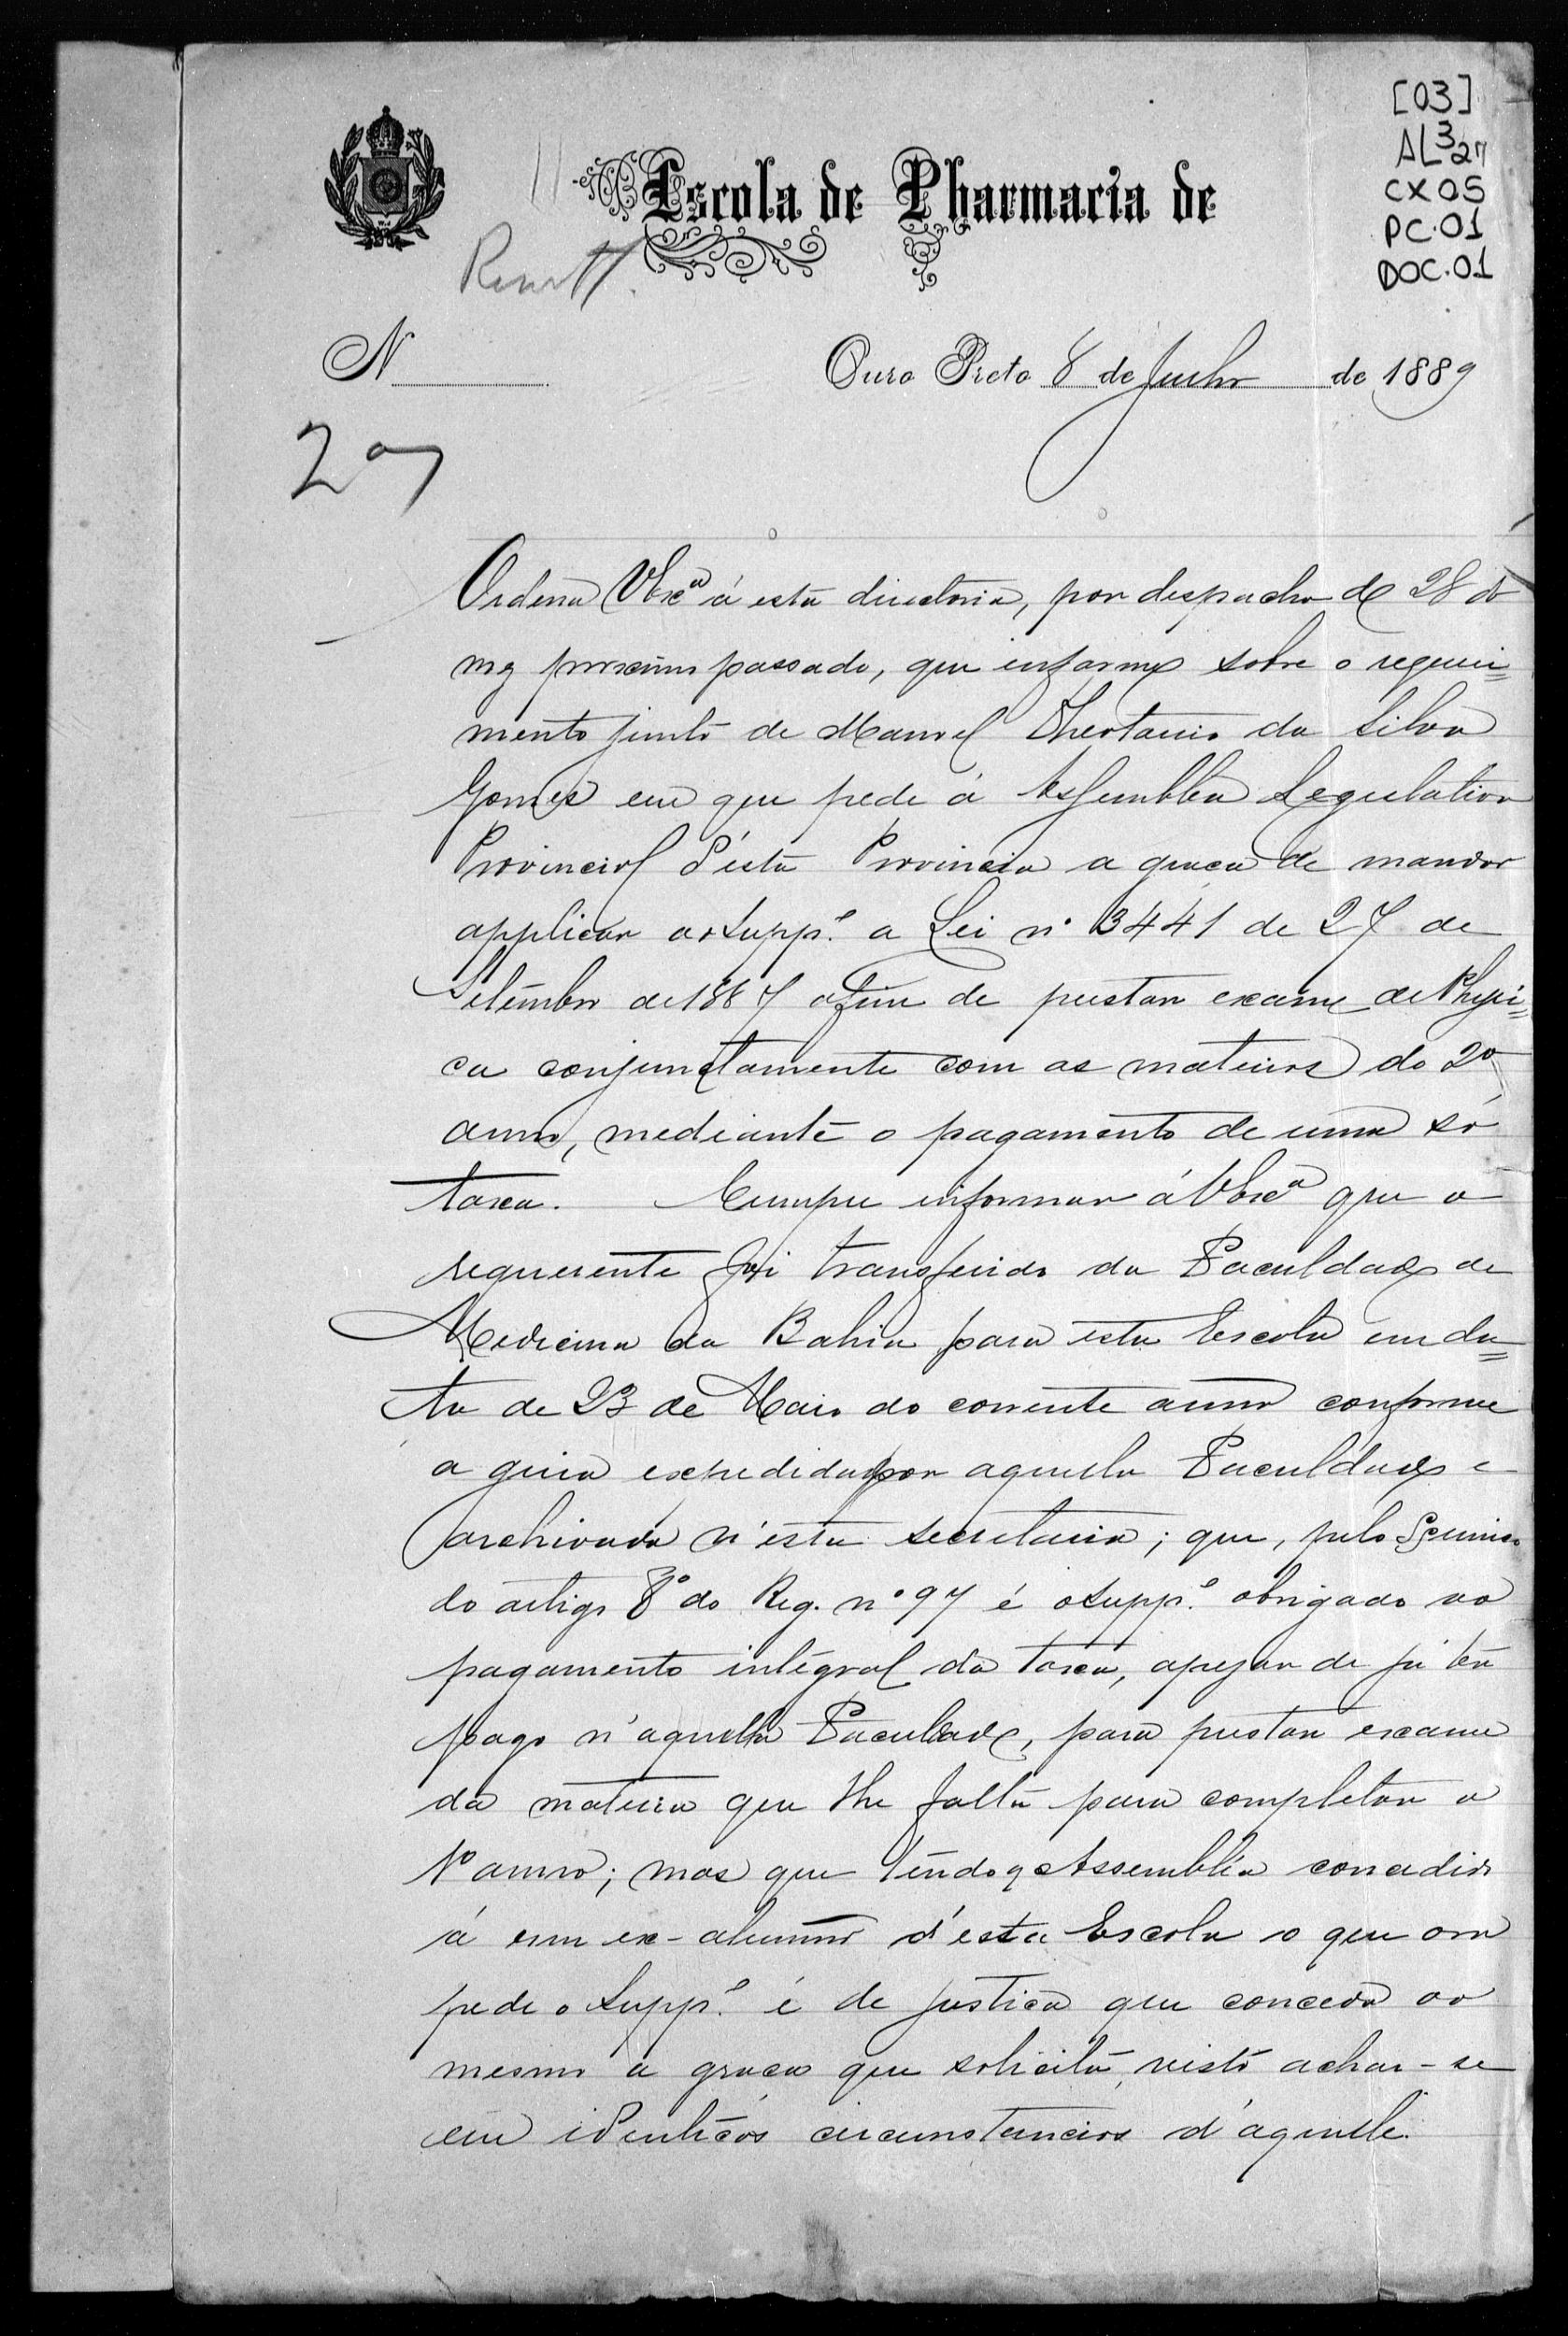 [03]
AL3 27
CX 05
PC.01
DOC.01
Escola de Pharmacia de
N
Ouro Preto 8 de Junho de 1889
27
Ordena VExcª á esta directoria, por despacho de 28 do
mez proximo passado, que informe sobre o requeri=
mento junto de Manoel Theotonio da Silva
Gomes em que pede á Assemblea Legislativa
Provincial d'esta Provincia a graça de mandar
applicar ao Suppe. a Lei nº 3441 de 27 de
Setembro de 1887 afim de prestar exame de Physi=
ca conjunctamente com as materias do 2º
anno, mediante o pagamento de uma só
taxa. Cumpre informar á VExcª que o
requerente foi transferido da Faculdade de
Medicina da Bahia para esta Escola em da=
ta de 23 de Maio do corrente anno conforme
a guia expedida por aquella Faculdade e
archivada n'esta secretaria; que, pelo § unico
do artigo 8º do Reg. nº 97 é o Suppe. obrigado ao
pagamento integral da taxa, apezar de já ter
pago n'aquella Faculdade, para prestar exame
da materia que lhe falta para completar o
1º anno; mas que tendo a Assembléa concedido
á um ex-alumno d'esta Escola o que ora
pede o Suppe. é de justiça que conceda ao
mesmo a graça que solicita, visto achar-se
em identicas circumstancias d'aquelle.